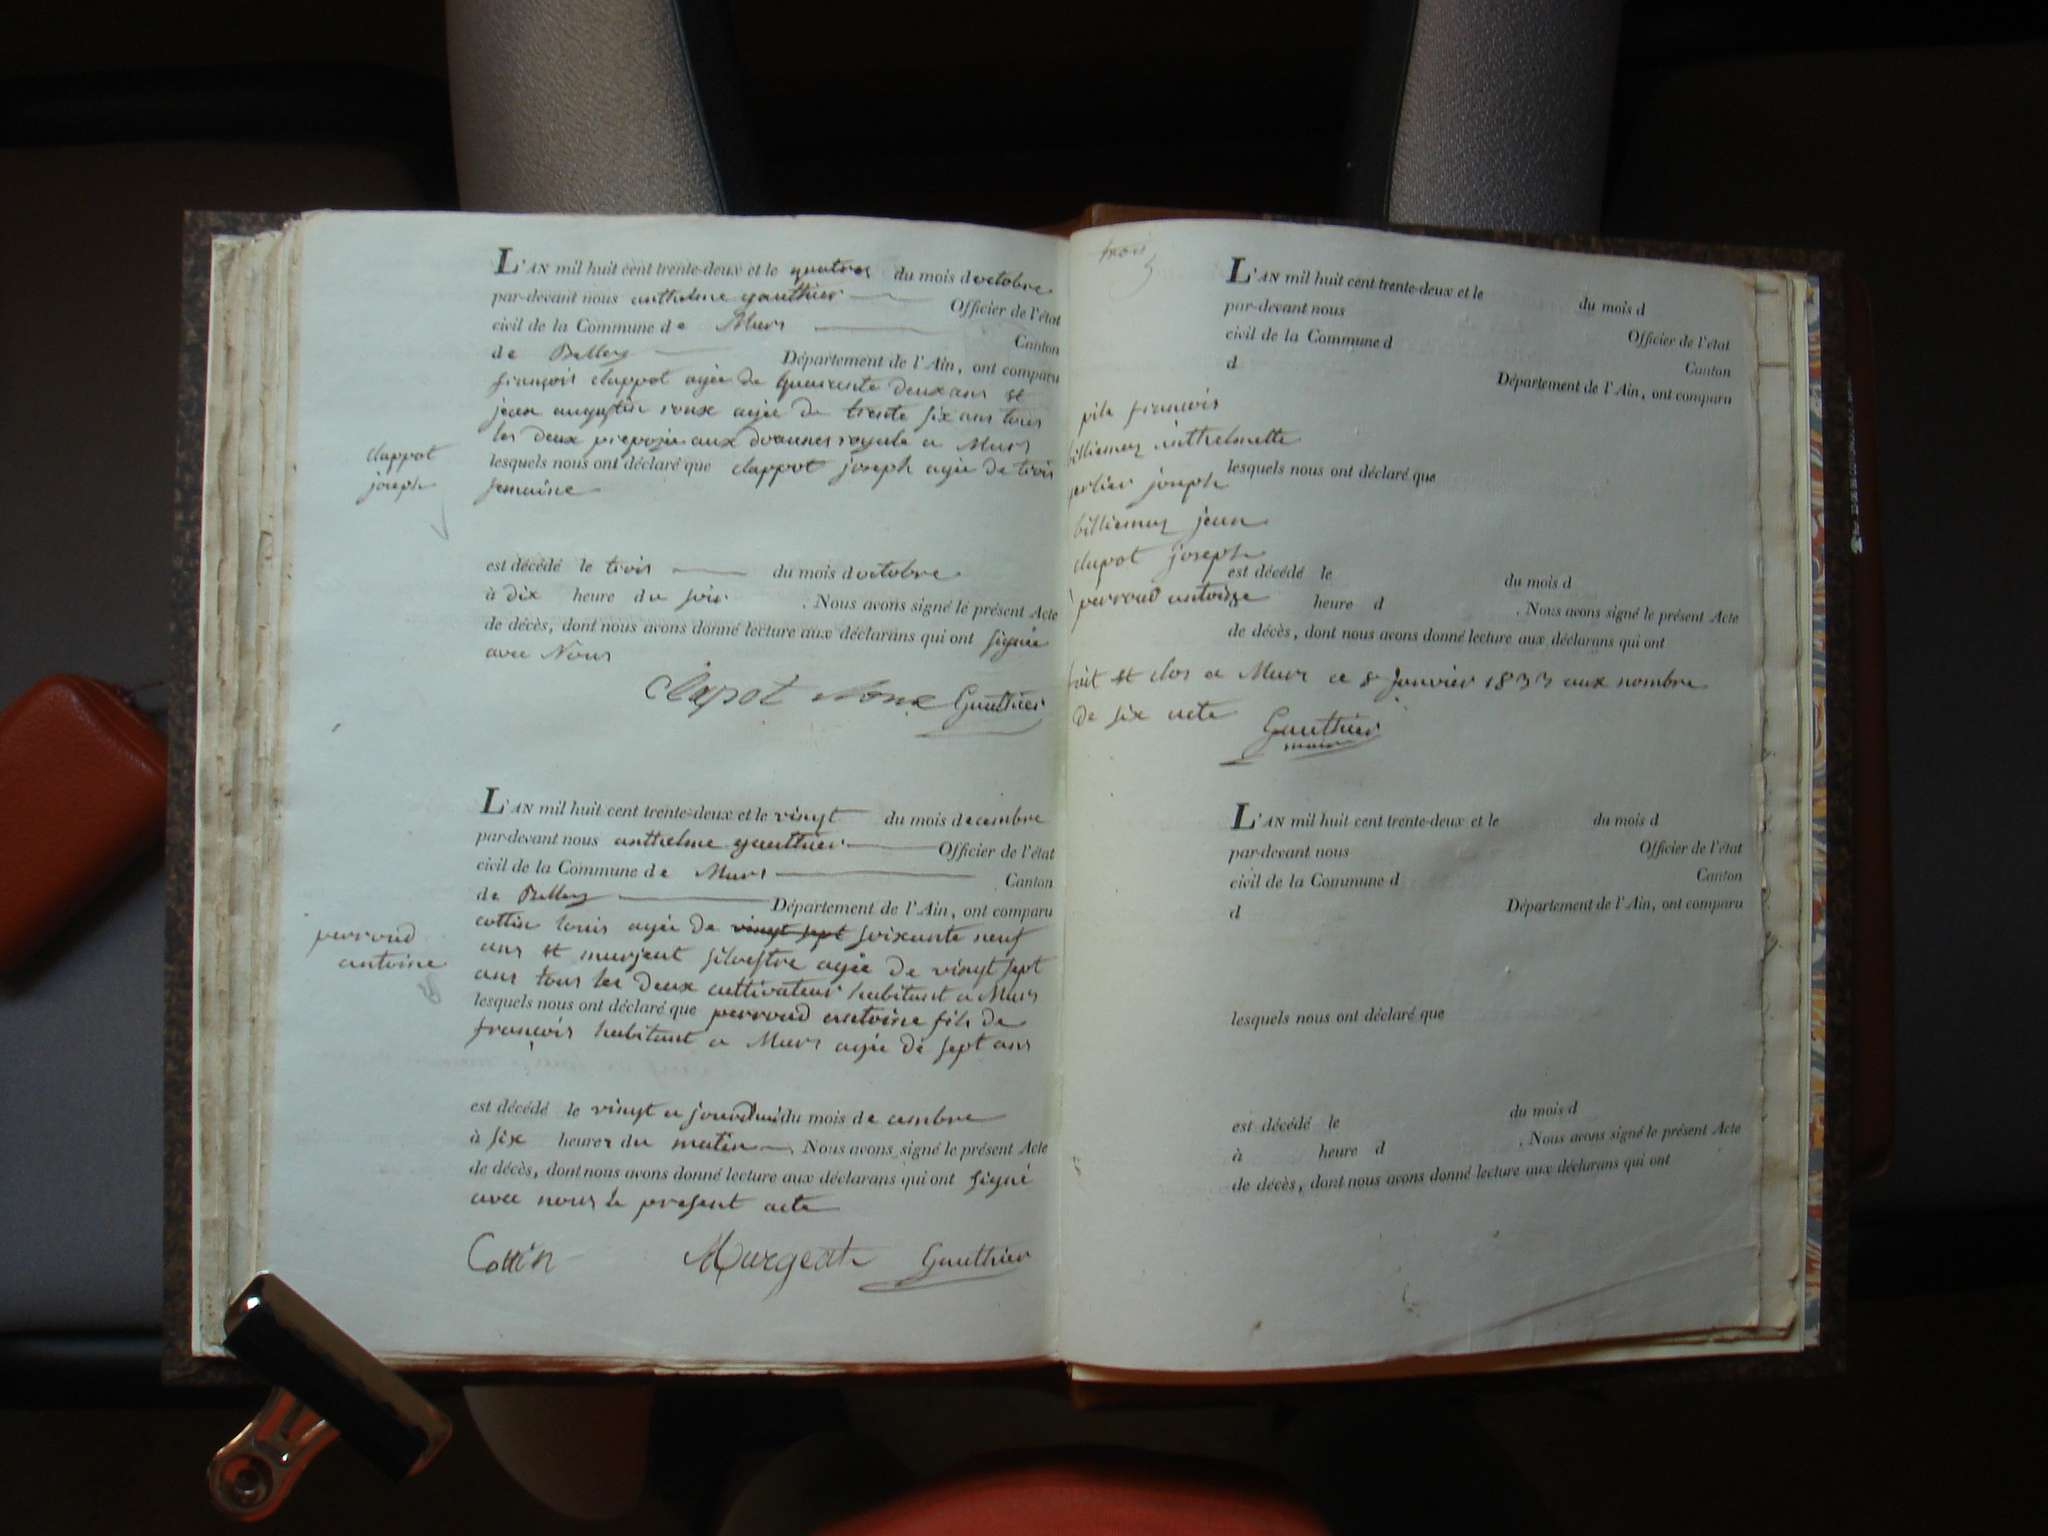 L'AN mil huit cent trente-deux et le quatres du mois doctobre
par-devant nous anthelme gauthier Officier de l'état
civil de la Commune de Murs Canton
de Belley Département de l'Ain, ont comparu
françois clappot agée de quarente deux ans et
jean augustin roux agée de trente six ans tous
les deux preposée aux douannes royale a Murs
clappot
joseph
lesquels nous ont déclaré que clappot joseph agée de trois
semaine
est décédé le trois du mois doctobre
à dix heure du soir . Nous avons signé le présent Acte
de décès, dont nous avons donné lecture aux déclarans qui ont signée
avec Nous
Clapot Roux Gauthier
L'AN mil huit cent trente-deux et le vingt du mois decembre
par-devant nous anthelme gauthier Officier de l'état
civil de la Commune de Murs Canton
de Belley Département de l'Ain, ont comparu
cottin louis agée de vingt sept soixante neuf
ans et murjeat silvestre agée de vingt sept
ans tous les deux cultivateur habitant a Murs
perroud
antoine
lesquels nous ont déclaré que perroud antoine fils de
françois habitant a Murs agée de sept ans
est décédé le vingt a jourdhui du mois de cembre
à six heures du matin Nous avons signé le présent Acte
de décès, dont nous avons donné lecture aux déclarans qui ont signé
avec nous le present acte
Cottin Murgeat Gauthier
trois
L'AN mil huit cent trente-deux et le du mois d
par-devant nous Officier de l'état
civil de la Commune d Canton
d Département de l'Ain, ont comparu
françois
billiemaz anthelmette
lesquels nous ont déclaré que
joseph
billiemaz jean
clapot joseph
est décédé le du mois d
perroud antoine
heure d . Nous avons signé le présent Acte
de décès, dont nous avons donné lecture aux déclarans qui ont
fait et clos a Murs ce 8 Janvier 1833 aux nombre
de six acte
Gauthier
maire
L'AN mil huit cent trente-deux et le du mois d
par-devant nous Officier de l'état
civil de la Commune d Canton
d Département de l'Ain, ont comparu
lesquels nous ont déclaré que
est décédé le du mois d
à heure d . Nous avons signé le présent Acte
de décès, dont nous avons donné lecture aux déclarans qui ont